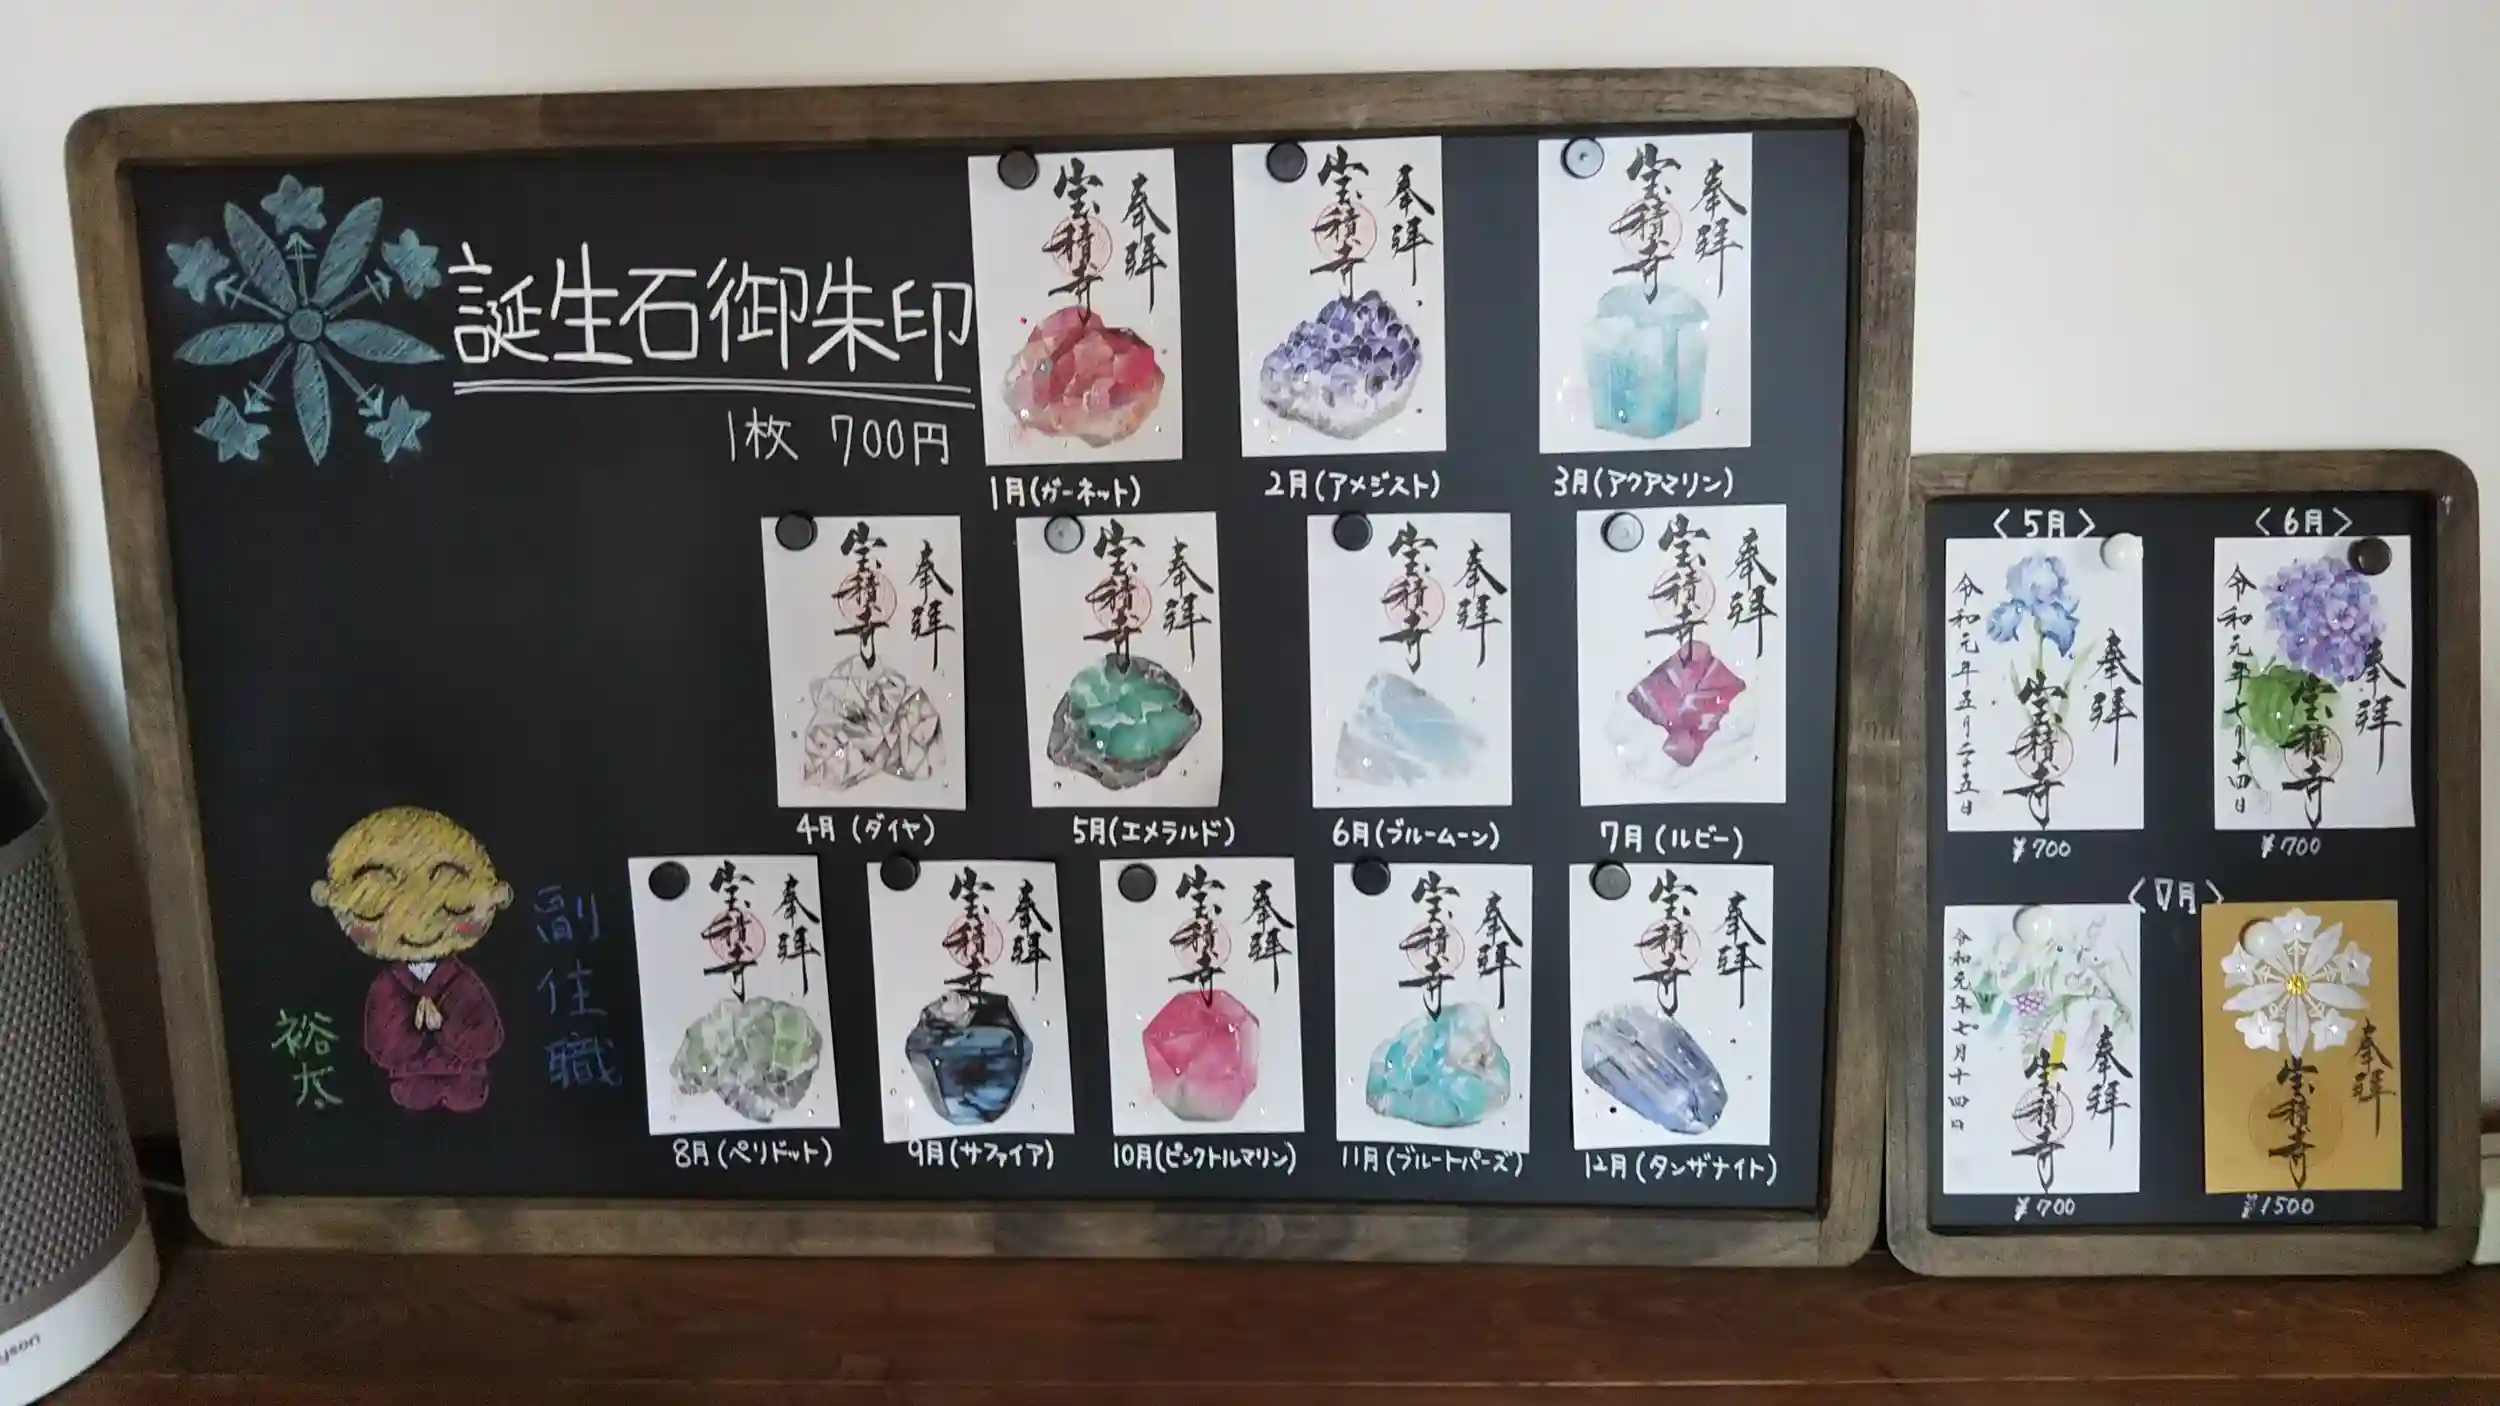 誕生石御朱印
1枚 700円
奉拝
宝積寺
1月(ガーネット)
奉拝
宝積寺
2月(アメジスト)
奉拝
宝積寺
3月(アクアマリン)
奉拝
宝積寺
4月(ダイヤ)
奉拝
宝積寺
5月(エメラルド)
奉拝
宝積寺
6月(ブルームーン)
奉拝
宝積寺
7月(ルビー)
奉拝
宝積寺
8月(ペリドット)
奉拝
宝積寺
9月(サファイア)
奉拝
宝積寺
10月(ピンクトルマリン)
奉拝
宝積寺
11月(ブルートパーズ)
奉拝
宝積寺
12月(タンザナイト)
副住職
裕太
〈5月〉
奉拝
宝積寺
令和元年五月二十五日
¥700
〈6月〉
奉拝
宝積寺
令和元年七月十四日
¥700
〈7月〉
奉拝
宝積寺
令和元年七月十四日
¥700
奉拝
宝積寺
¥1500
dyson